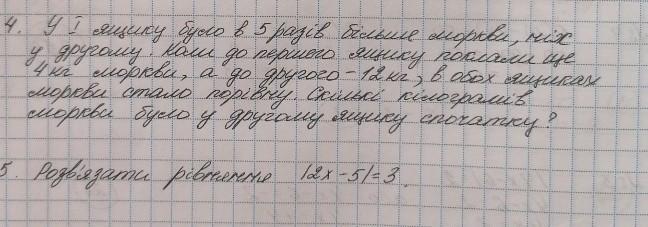 4. У I ящику було в 5 разів більше моркви, ніж
у другому. Коли до першого ящику поклали ще
4 кг моркви, а до другого - 12 кг, в обох ящиках
моркви стало порівну. Скількі кілограмів
моркви було у другому ящику спочатку?
5. Розв'язати рівняння |2x-5|=3.